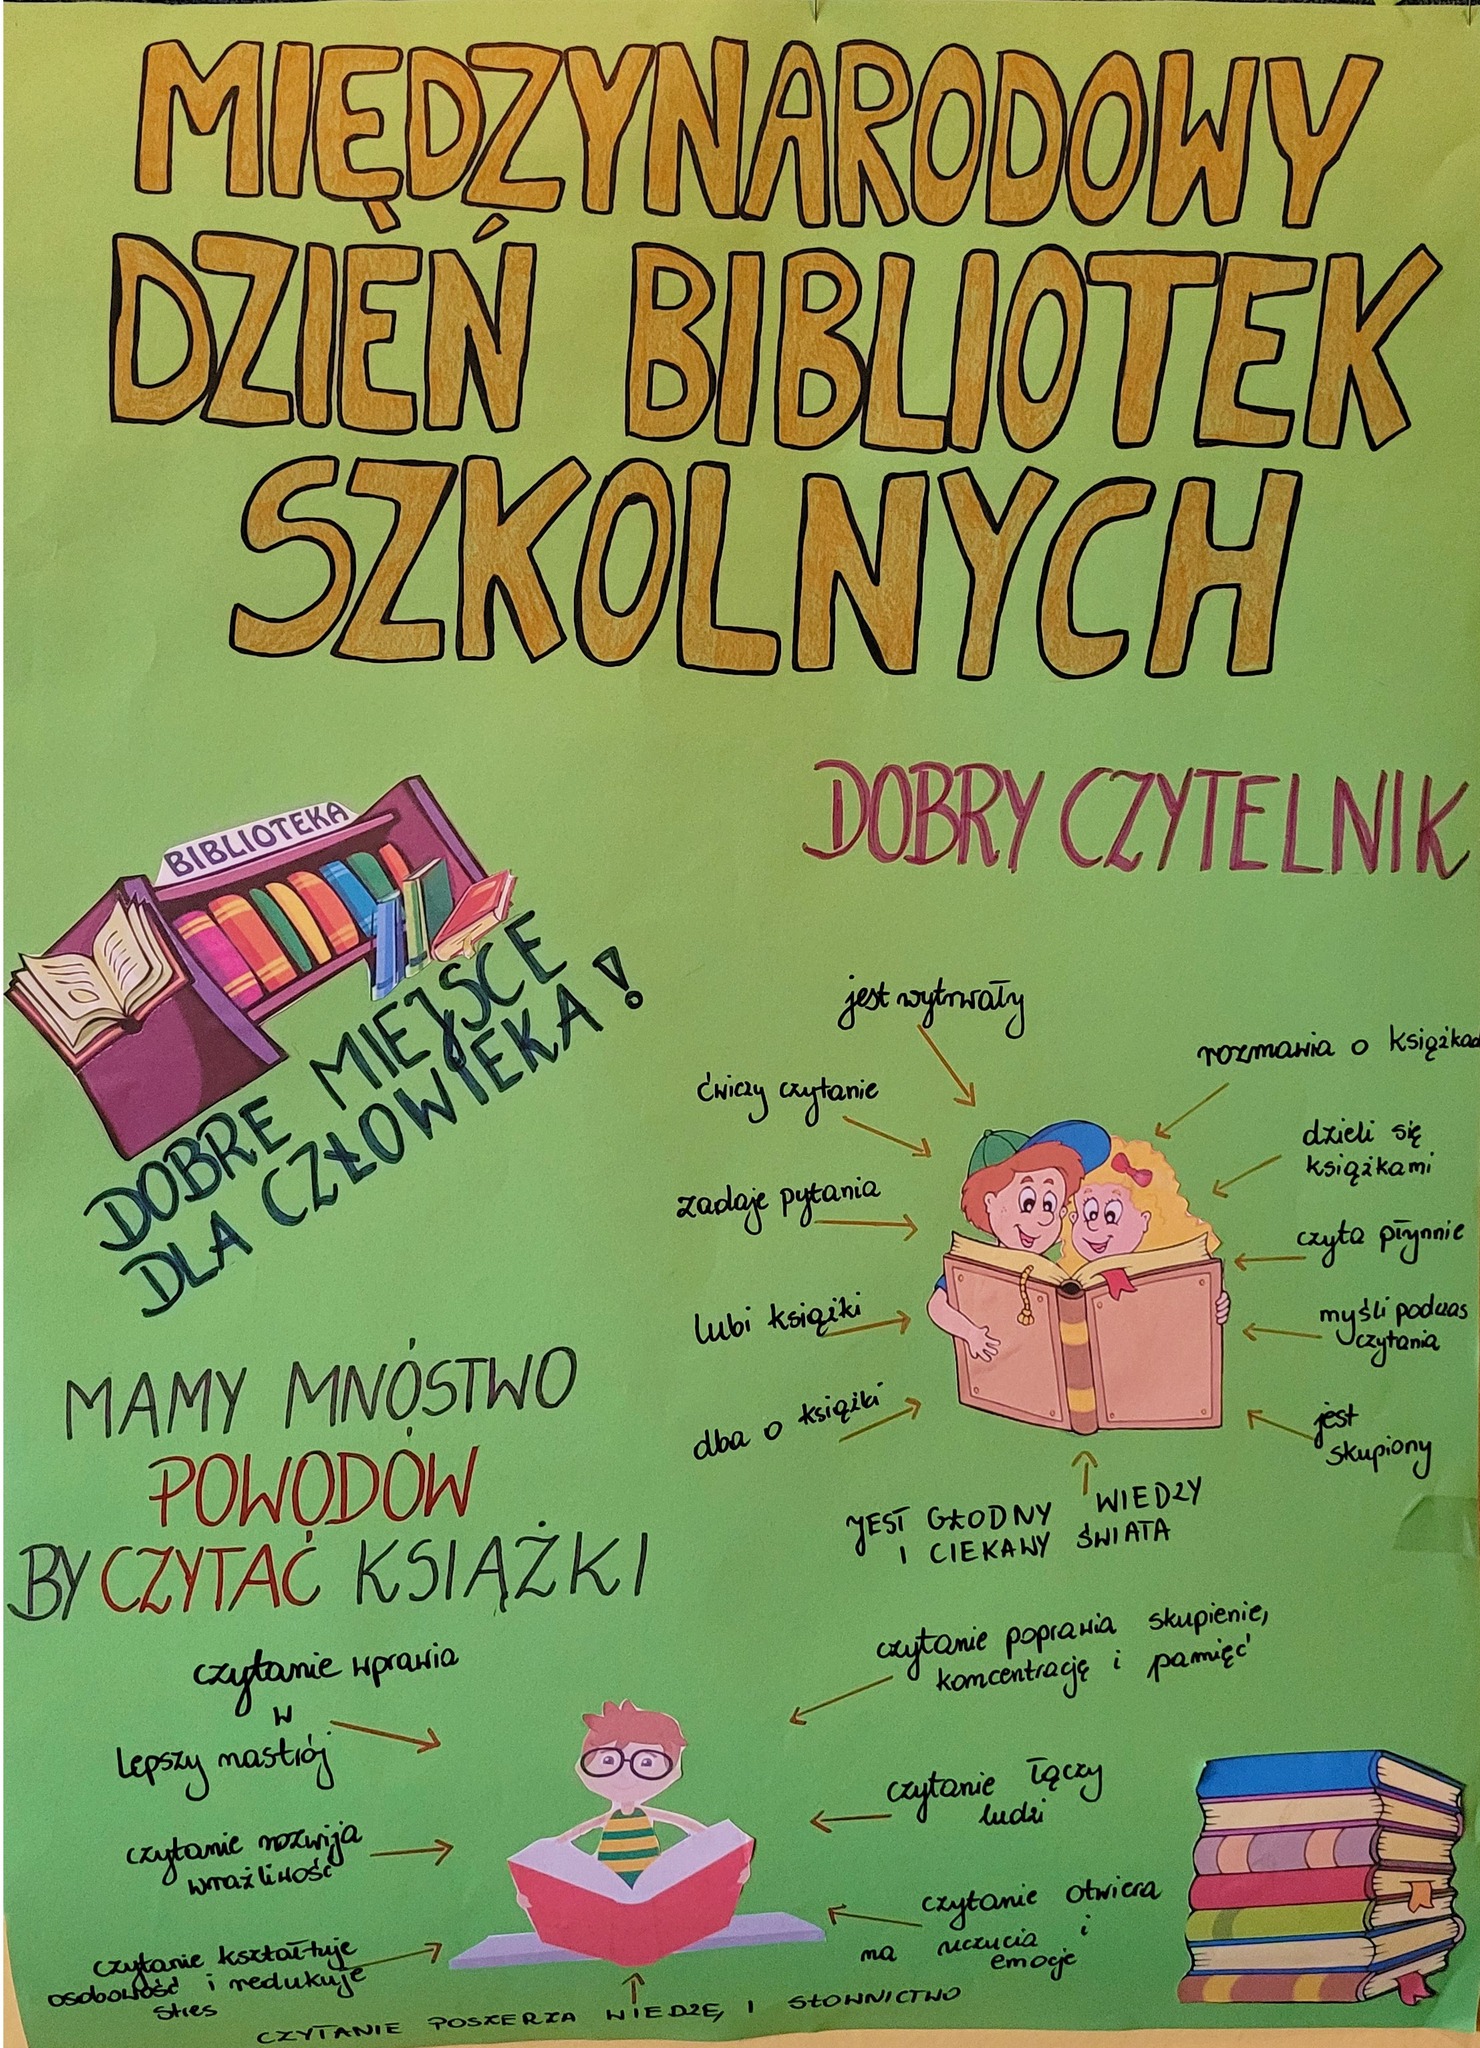 MIĘDZYNARODOWY
DZIEŃ BIBLIOTEK
SZKOLNYCH
BIBLIOTEKA
DOBRE MIEJSCE
DLA CZŁOWIEKA!
DOBRY CZYTELNIK
jest wytrwały
ćwiczy czytanie
zadaje pytania
lubi książki
dba o książki
rozmawia o
dzieli się
książkami
czyta płynnie
myśli podczas
czytania
jest
skupiony
JEST GŁODNY WIEDZY
I CIEKAWY ŚWIATA
MAMY MNÓSTWO
POWODÓW
BY CZYTAĆ KSIĄŻKI
czytanie wprawia
w
lepszy nastrój
czytanie rozwija
wrażliwość
czytanie kształtuje
osobowość i redukuje
stres
CZYTANIE POSZERZA WIEDZĘ I SŁOWNICTWO
czytanie poprawia skupienie,
koncentrację i pamięć
czytanie łączy
ludzi
czytanie otwiera
na uczucia i
emocje